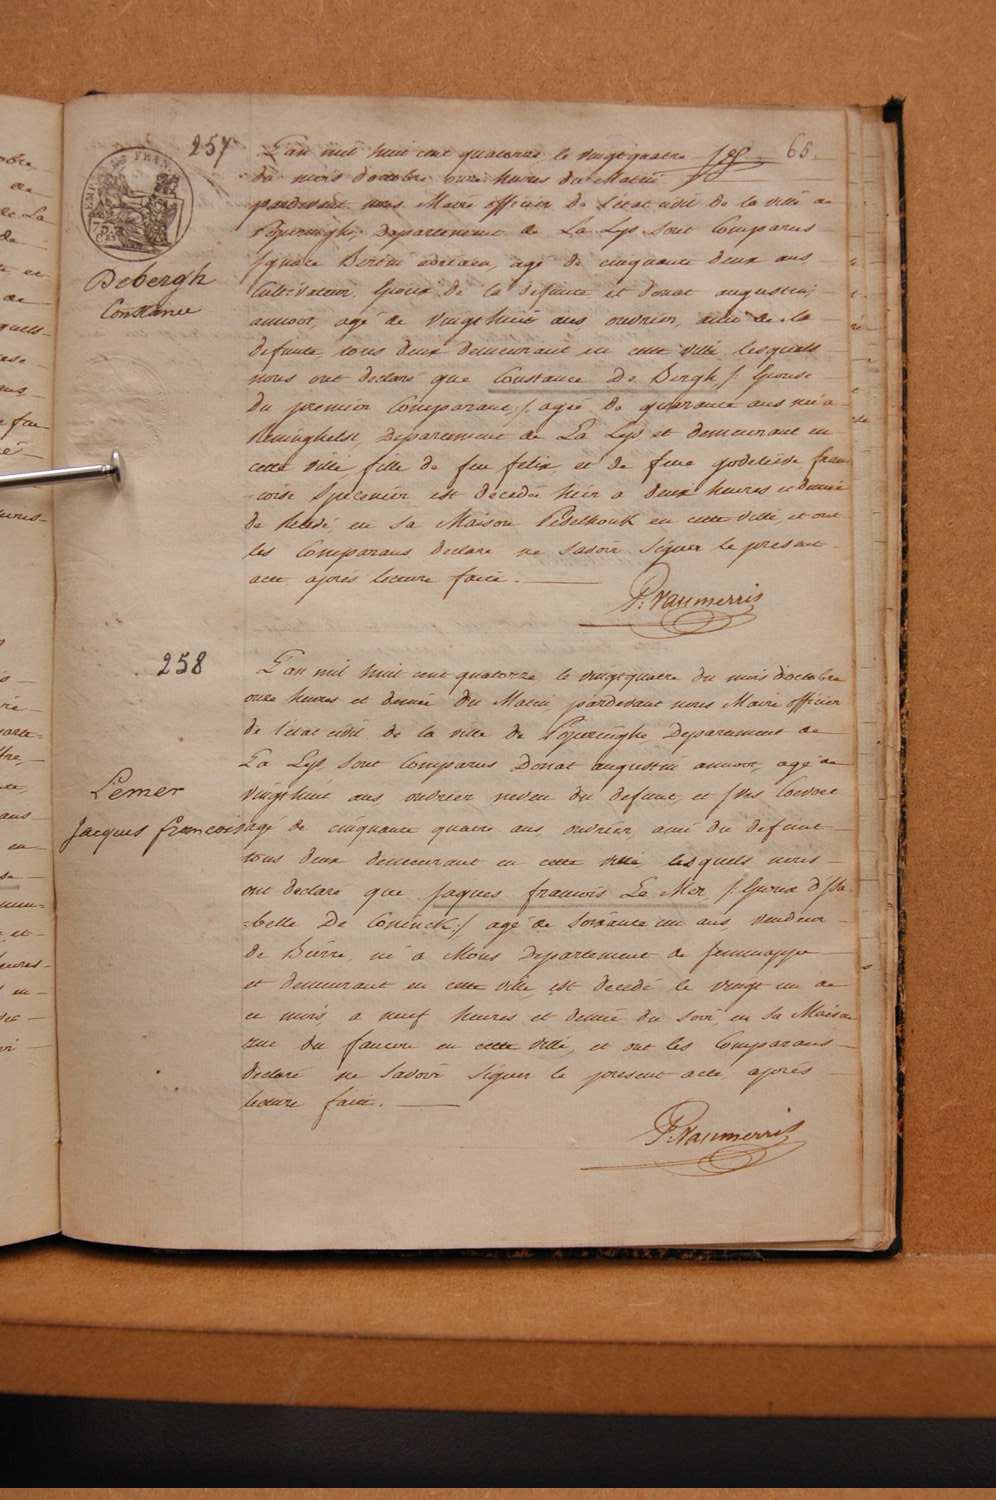 257
65
L'an mil huit cent quatorze le vingtquatre
du mois d'octobre onze heures du Matin
pardevant nous Maire officier de l'état civil de la ville de
Poperinghe, Departement de La Lys sont Comparus
Ignace Benoit adriaen, agé de cinquante deux ans
Cultivateur, Epoux de la defunte et donat augustin
annoot, agé de vingthuit ans ouvrier, ami de la
defunte, tous deux demeurant en cette ville, lesquels
nous ont declaré que Constance De Bergh /: Epouse
du premier Comparant :/ agée de quarante ans née a
Reninghelst, Departement de La Lys et demeurant en
cette ville fille de feu felix, et de feue godelieve fran=
=coise Specenier est décédée hier a deux heures et demie
de Relevé, en sa Maison Peselhouk en cette ville, et ont
les Comparans declaré ne savoir signer le present
acte après lecture faite.
P. Vanmerris
Debergh
Constance
258
L'an mil huit cent quatorze le vingtquatre du mois d'octobre
onze heures et demie du Matin, pardevant nous Maire officier
de l'état civil de la ville de Poperinghe Departement de
La Lys, sont Comparus Donat augustin annoot, agé de
vingthuit ans ouvrier neveu du defunt, et Yves
agé de cinquante quatre ans, ouvrier, ami du defunt
tous deux demeurant en cette ville, lesquels nous
ont declaré que Jaques francois Le Mer, /: Epoux d'Isa=
=belle De Coninck :/ agé de soixante un ans, vendeur
de Bierre, né a Mons Departement de Jemmappe
et demeurant en cette ville, est decedé le vingt un de
ce mois a neuf heures et demie du soir, en sa Maison
rue du faucon en cette ville, et ont les Comparans
declaré ne savoir signer le present acte après
lecture faite.
P. Vanmerris
Lemer
Jacques francois